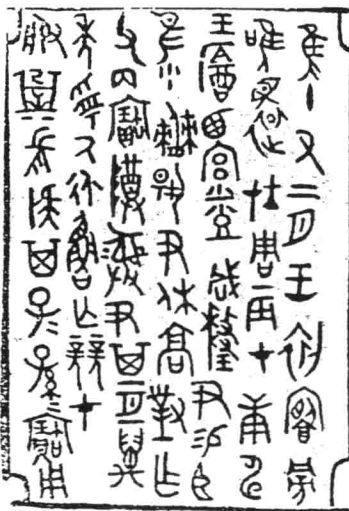 隹十又二月王初旁
唯還在周辰才庚申
王飲西宮烝咸釐尹易臣
隹小僰揚尹休高對乍
父丙寶尊彝尹其亙萬
年受氒永魯亡競才
服㠱長疑其子＝孫＝寶用